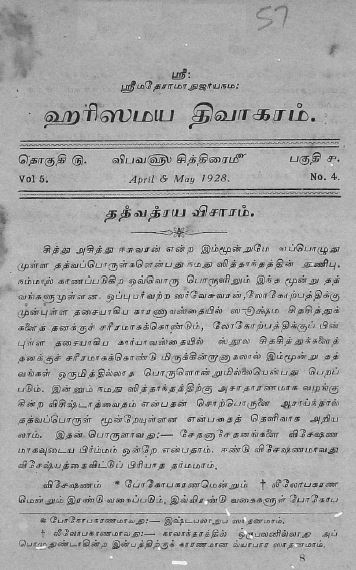 57
ஸ்ரீ:
ஸ்ரீமதேராமாநுஜாயநம:
ஹரிஸமய திவாகரம்.
தொகுதி ௫. விபவ௵ சித்திரைமீ பகுதி ௪.
Vol 5. April & May 1928. No. 4.
தத்வத்ரய விசாரம்.
சித்து அசித்து ஈசுவரன் என்ற இம்மூன்றுமே எப்பொழுது
முள்ள தத்வப்பொருள்களென்பது நமது ஸித்தாந்தத்தின் துணிபு.
நம்மால் காணப்படுகிற ஒவ்வொரு பொருளிலும் இந்த மூன்று தத்
வங்களுமுள்ளன. ஒப்புயர்வற்ற ஸர்வேசுவரன், லோகோற்பத்திக்கு
முன்புள்ள தசையாகிய காரணாவஸ்தையில் ஸூக்ஷ்ம சிதசித்துக்
களைத் தனக்குச் சரீரமாகக்கொண்டும், லோகோற்பத்திக்குப் பின்
புள்ள தசையாகிய கார்யாவஸ்தையில் ஸ்தூல சிதசித்துக்களைத்
தனக்குச் சரீரமாகக்கொண்டு மிருக்கின்றானாதலால் இம்மூன்று தத்
வங்கள் ஒருமித்தில்லாத பொருளொன்றுமில்லையென்பது பெறப்
படும். இன்னும் நமது ஸித்தாந்தத்திற்கு அசாதாரணமாக வழங்கு
கின்ற விசிஷ்டாத்வைதம் என்பதன் சொற்பொருளை ஆராய்ந்தால்
தத்வப்பொருள் மூன்றேயுள்ளன என்பதைத் தெளிவாக அறிய
லாம். இதன் பொருளாவது:— சேதனாசேதனங்களை விசேஷண
மாகவுடைய பிரம்மம் ஒன்றே என்பதாம். ஈண்டு விசேஷணமாவது
விசேஷ்யத்தைவிட்டுப் பிரியாத தர்மமாம்.
விசேஷணம் * போகோபகரணமென்றும் † லீலோபகரண
மென்றும் இரண்டு வகைப்படும், இவ்விரண்டு வகைகளுள் போகோப
* போகோபகரணமாவது:— இஷ்டபலாநுப ஸாதனமாம்.
† லீலோபகரணமாவது:— காலாந்தரத்தில் ஒருபலனில்லாது அப்
பொழுதுண்டாகின்ற இன்பத்திற்குக் காரணமான வ்யாபார ஸாதனமாம்.
8